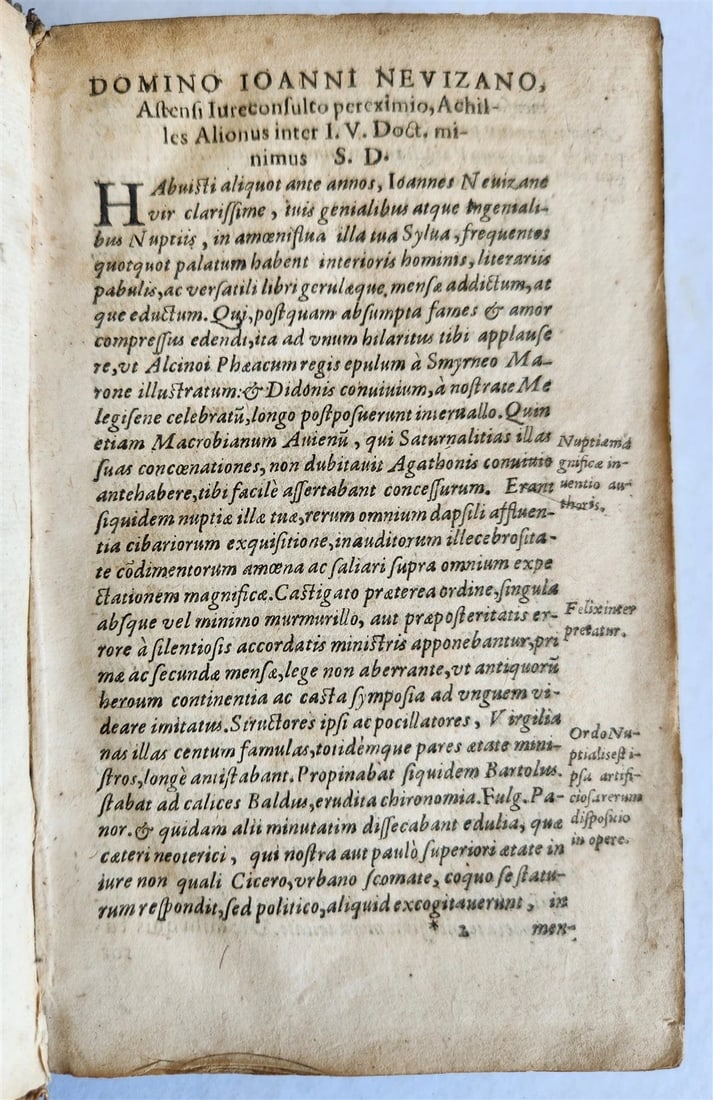 DOMINO IOANNI NEVIZANO,
Astensi Iureconsulto pereximio, Achil-
les Alionus inter I. V. Doct. mi-
nimus S. D.
HAbuisti aliquot ante annos, Ioannes Neuizane
vir clarissime, tuis genialibus atque ingeniali-
bus Nuptiis, in amœniflua illa tua Sylua, frequentes
quotquot palatum habent interioris hominis, literariis
pabulis, ac versatili libri gerulæque mensæ addictum, at
que eductum. Qui, postquam absumpta fames & amor
compressus edendi, ita ad vnum hilaritus tibi applause
re, vt Alcinoi Phæacum regis epulum à Smyrneo Ma-
rone illustratum: & Didonis conuiuium, à nostrate Me
legisene celebratũ, longo postposuerunt interuallo. Quin
etiam Macrobianum Auienũ, qui Saturnalitias illas
suas concœnationes, non dubitauit Agathonis conuiuio
antehabere, tibi facilè assertabant concessurum. Erant
siquidem nuptiæ illæ tuæ, rerum omnium dapsili affluen-
tia cibariorum exquisitione, inauditorum illecebrosita-
te cõdimentorum amœna ac saliari supra omnium expe
ctationem magnificæ. Castigato præterea ordine, singula
absque vel minimo murmurillo, aut præposteritatis er-
rore à silentiosis accordatis ministris apponebantur, pri
mæ ac secundæ mensæ, lege non aberrante, vt antiquorũ
heroum continentia ac casta symposia ad vnguem vi-
deare imitatus. Structores ipsi ac pocillatores, Virgilia
nas illas centum famulas, totidémque pares ætate mini-
stros, longè amistabant. Propinabat siquidem Bartolus.
stabat ad calices Baldus, erudita chironomia. Fulg. Pa-
nor. & quidam alii minutatim dissecabant edulia, quæ
cæteri neoterici, qui nostra aut paulò superiori ætate in
iure non quali Cicero, vrbano scomate, coquo se statu-
rum respondit, sed politico, aliquid excogitauerunt, in
* 2 men-
Nuptiæma
gnificæ in-
uentio au-
thoris.
Felix inter
pretatur.
Ordo Nu-
ptialis est i-
psa artifi-
ciosa rerum
dispositio
in opere.